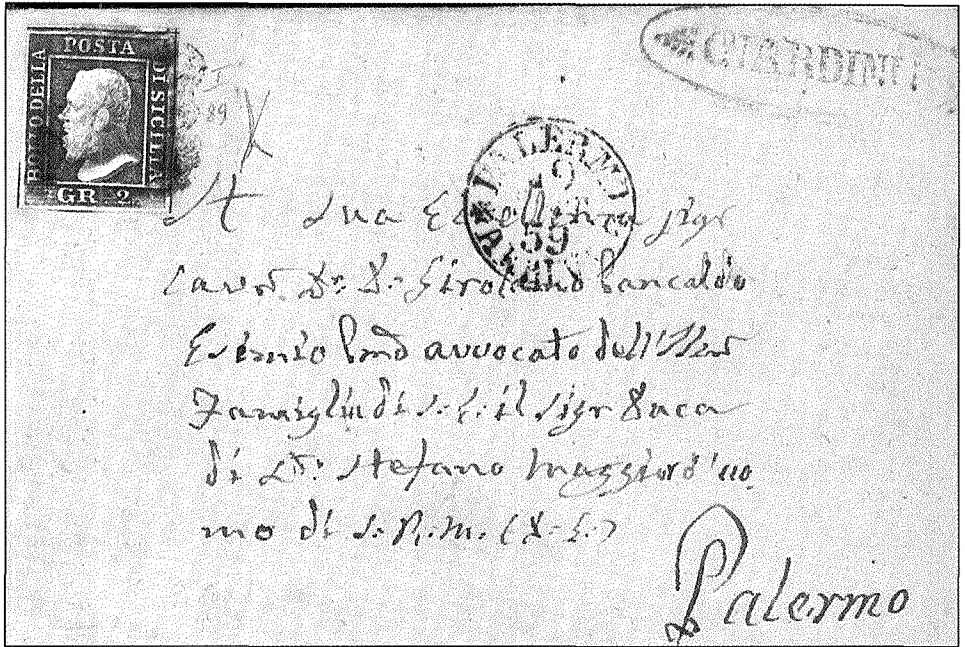 POSTA
BOLLO DELLA
DI SICILIA
GR 2
GIARDINI
89
PALERMO
9
59
A Sua Eccellenza Sigr
Cavr. Dn. D. Girolamo Pancaldo
Esimio avvocato dell'
Famiglia di S. E. il Sigr Duca
di Sto. Stefano Maggiord'uo
mo di S. R. M. (D. G.)
Palermo